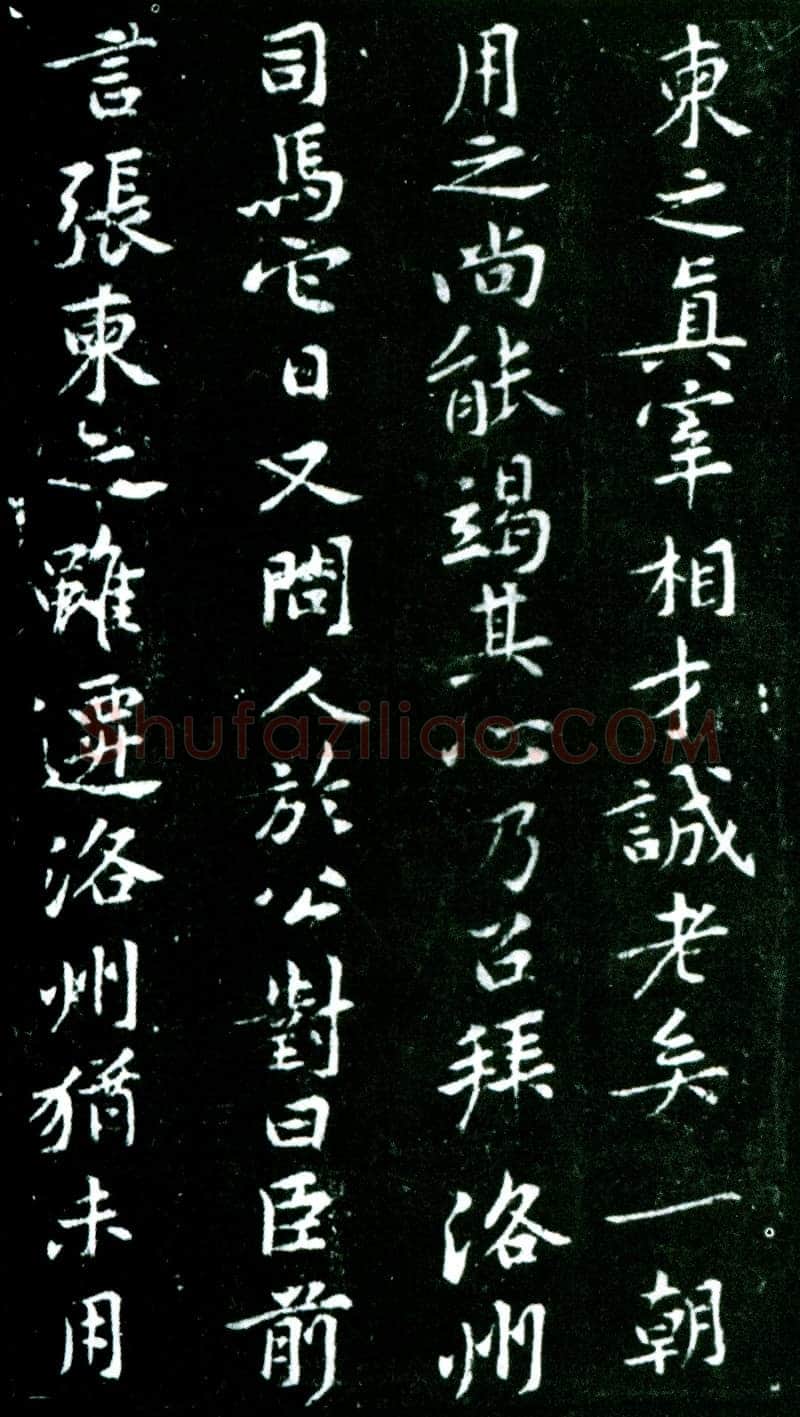 柬之眞宰相才誠老矣一朝
用之尚能竭其心乃召拜洛州
司馬它日又問人於公對曰臣前
言張柬之雖遷洛州猶未用
shufaziliao.COM